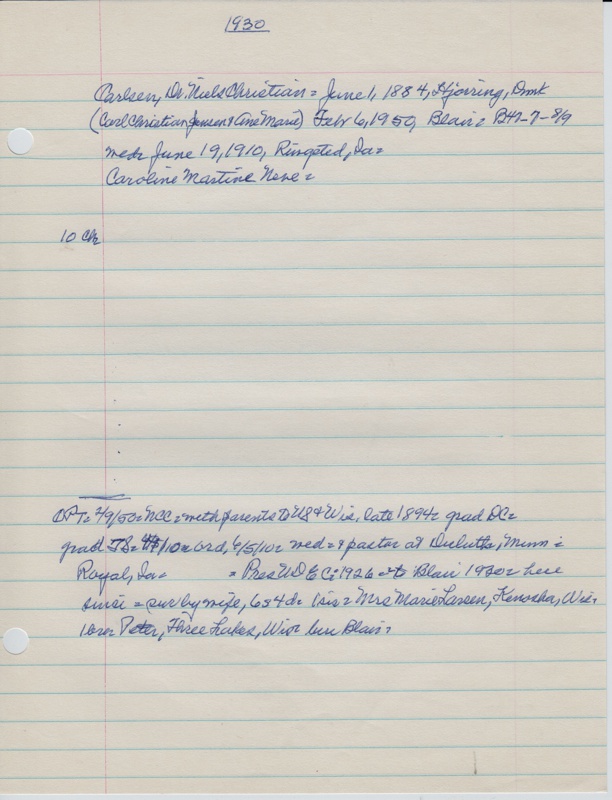 1930
Carlsen, Dr. Niels Christian = June 1, 1884, Hjorring, Dmk
(Carl Christian Jensen & Ane Marie) Feb 6, 1950, Blair = B47-7-8/9
med= June 19, 1910, Ringsted, Ia=
Caroline Martine Nene =
10 Ch
OPT= 2/9/50= NCC = with parents to US & Wis. late 1894= grad DC=
grad TS= /10= ord, 6/5/10= med = & pastor at Duluth, Minn =
Royal, Ia= = Pres UDELC= 1926 = to Blair 1930= here
since = sur by wife, 6s 4d= 1sis= Mrs Marie Larsen, Kenosha, Wis=
1bro= Peter, Three Lakes, Wis= bur Blair=